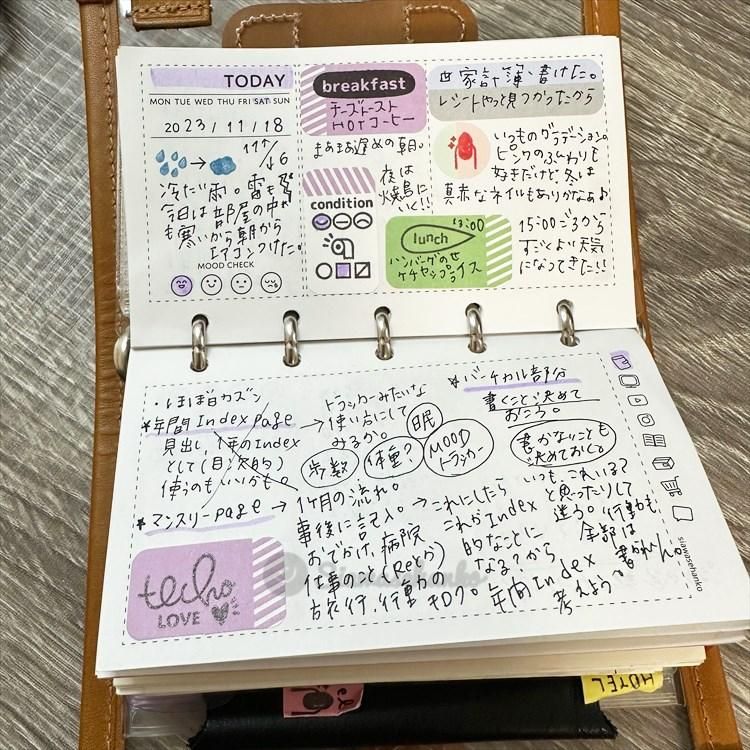 TODAY
MON TUE WED THU FRI SAT SUN
2023/11/18
11↑/↓6
冷たい雨。雷も
今日は部屋の中
も寒いから朝から
エアコンつけた。
MOOD CHECK
breakfast
チーズトースト
HOTコーヒー
まあまあ遅めの朝。
condition
夜は
焼鳥に
いく!!
家計簿、書けた。
レシートやっと見つかったから
いつものグラデーション。
ピンクのふんわりも
好きだけど、冬は
真赤なネイルもありかなぁ♪
13:00
lunch
ハンバーグのせ
ケチャップライス
15:00ごろから
すごくよい天気
になってきた!!
・ほぼ日カズン
*年間Index page
見出し、1年のIndex
として(目次的)
使うのもいいかも。
→トラッカーみたいな
使い方にして
みるか。
眠
歩数
体重?
MOOD
トラッカー
*マンスリーpage
→1ヶ月の流れ。
事後に記入。
おでかけ、病院
仕事のこと(Reとか)
旅行、行動の
→これにしたら
これがIndex
的なことに
なる?から
年間Index
考えよう。
*バーチカル部分
書くこと決めて
おこう。
書かないことも
決めておく。
いつもこれいる?
と思ったりして
迷う。行動も
全部は
書かん。
techo
LOVE
siawasehanko
siawasehanko
HOTEL